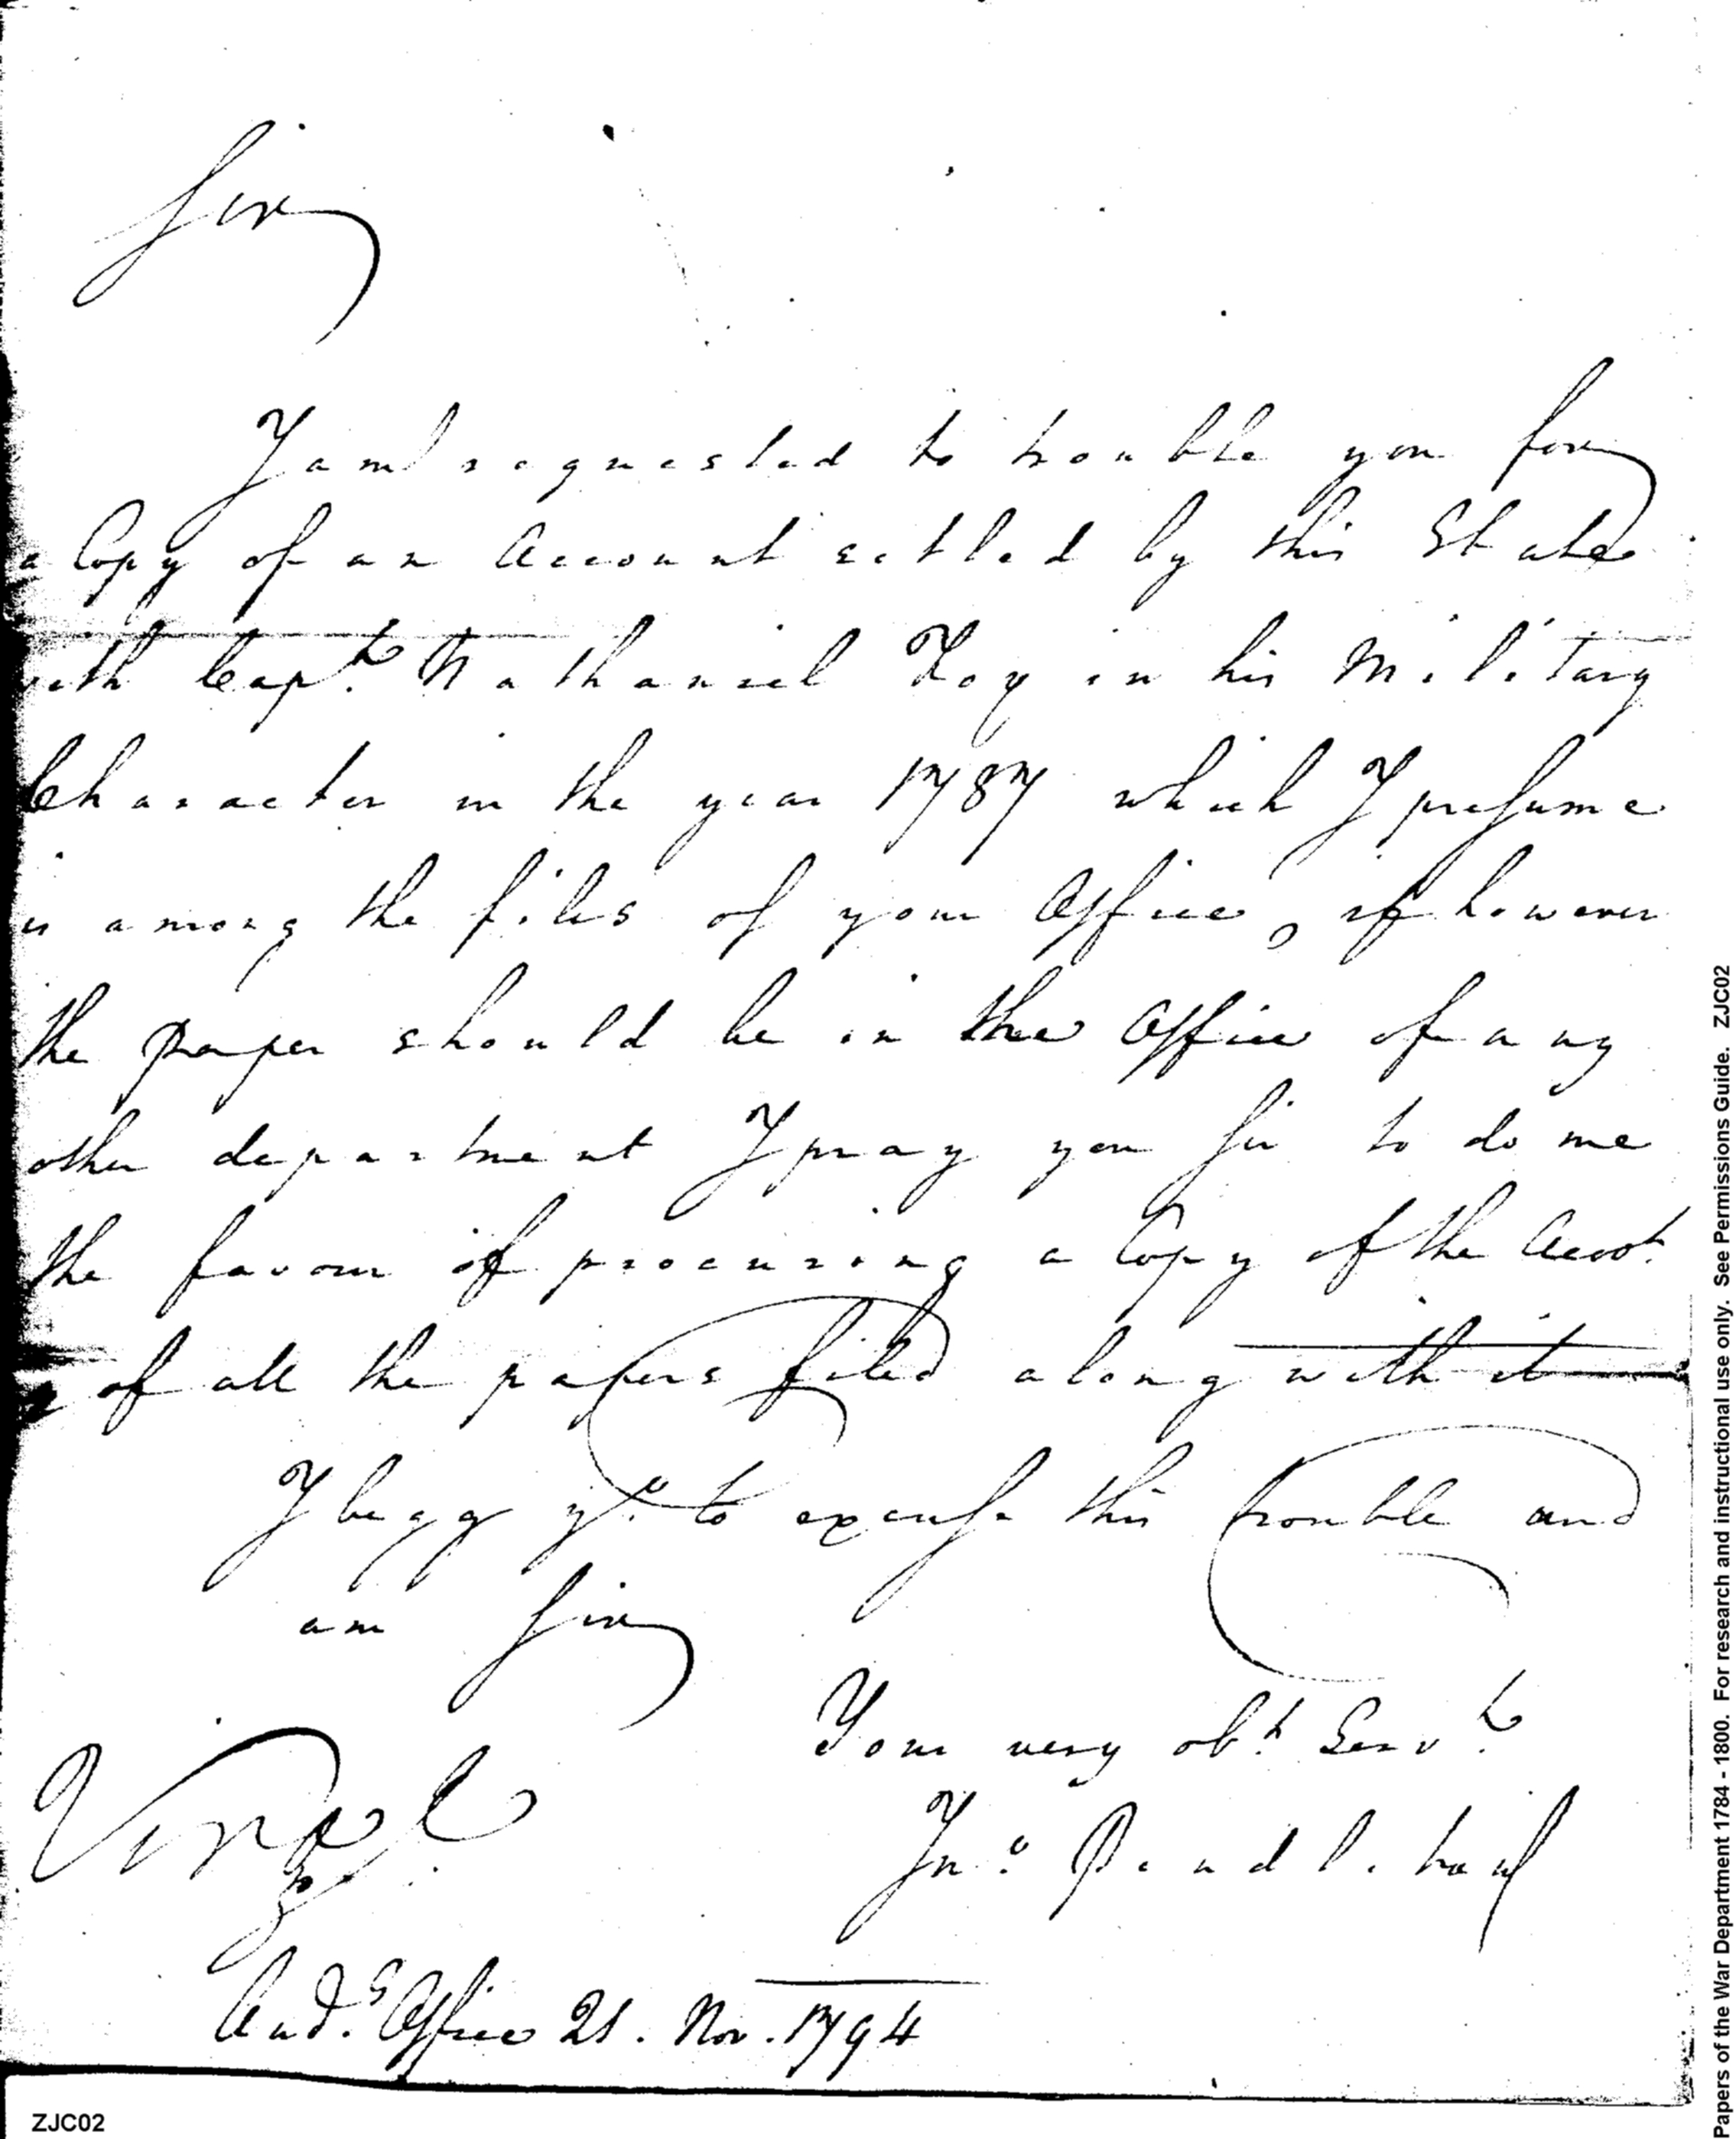 Sir
I am requested to trouble you for
a Copy of an Account setled by this State
with Capt. Nathaniel Fox in his Military
Character in the year 1787 which I presume
is among the files of your Office, if however
the paper should be in the Office of any
other department I pray you Sir to do me
the favour of procuring a Copy of the Accot.
of all the papers filed along with it
I begg yo. to excuse this trouble and
am Sir
Your very obt. Servt.
Jno. Pendleton
Virga
Aud.s Office 21. Nov. 1794
ZJC02
Papers of the War Department 1784 - 1800. For research and instructional use only. See Permissions Guide. ZJC02